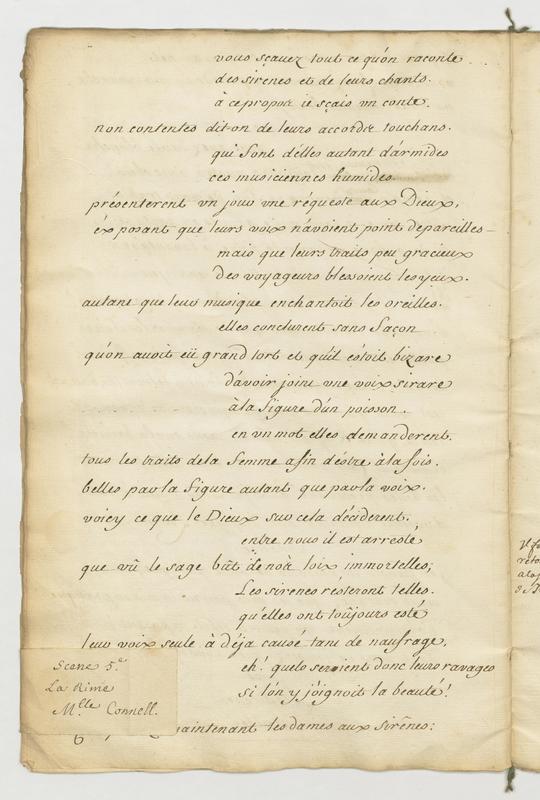 vous sçavez tout ce qu'on raconte
des sirenes et de leurs chants.
à ce propos ie sçais un conte.
non contentes dit-on de leurs accords touchans.
qui sont d'elles autant d'armides
ces musiciennes humides
présenterent un jour une réqueste aux Dieux,
éxposant que leurs voix n'avoient point de pareilles
mais que leurs traits peu gracieux
des voyageurs blessoient les yeux.
autant que leur musique enchantoit les oreilles.
elles conclurent sans façon
qu'on avoit eü grand tort et qu'il éstoit bizare
d'avoir joint une voix si rare
à la figure d'un poisson.
en un mot elles demanderent.
tous les traits de la femme afin d'éstre à la fois.
belles par la figure autant que par la voix.
voicy ce que le Dieux sur cela déciderent.
entre nous il est arresté
que vû le sage bût de nos loix immortelles;
Les sirenes resteront telles.
qu'elles ont toûjours esté
leur voix seule à déja causé tant de naufrage,
eh! quels seroient donc leurs ravages
si l'ón y jóignoit la beauté!
maintenant les dames aux sirênes:
Scene 5.e
La Rime
M.lle Connell.